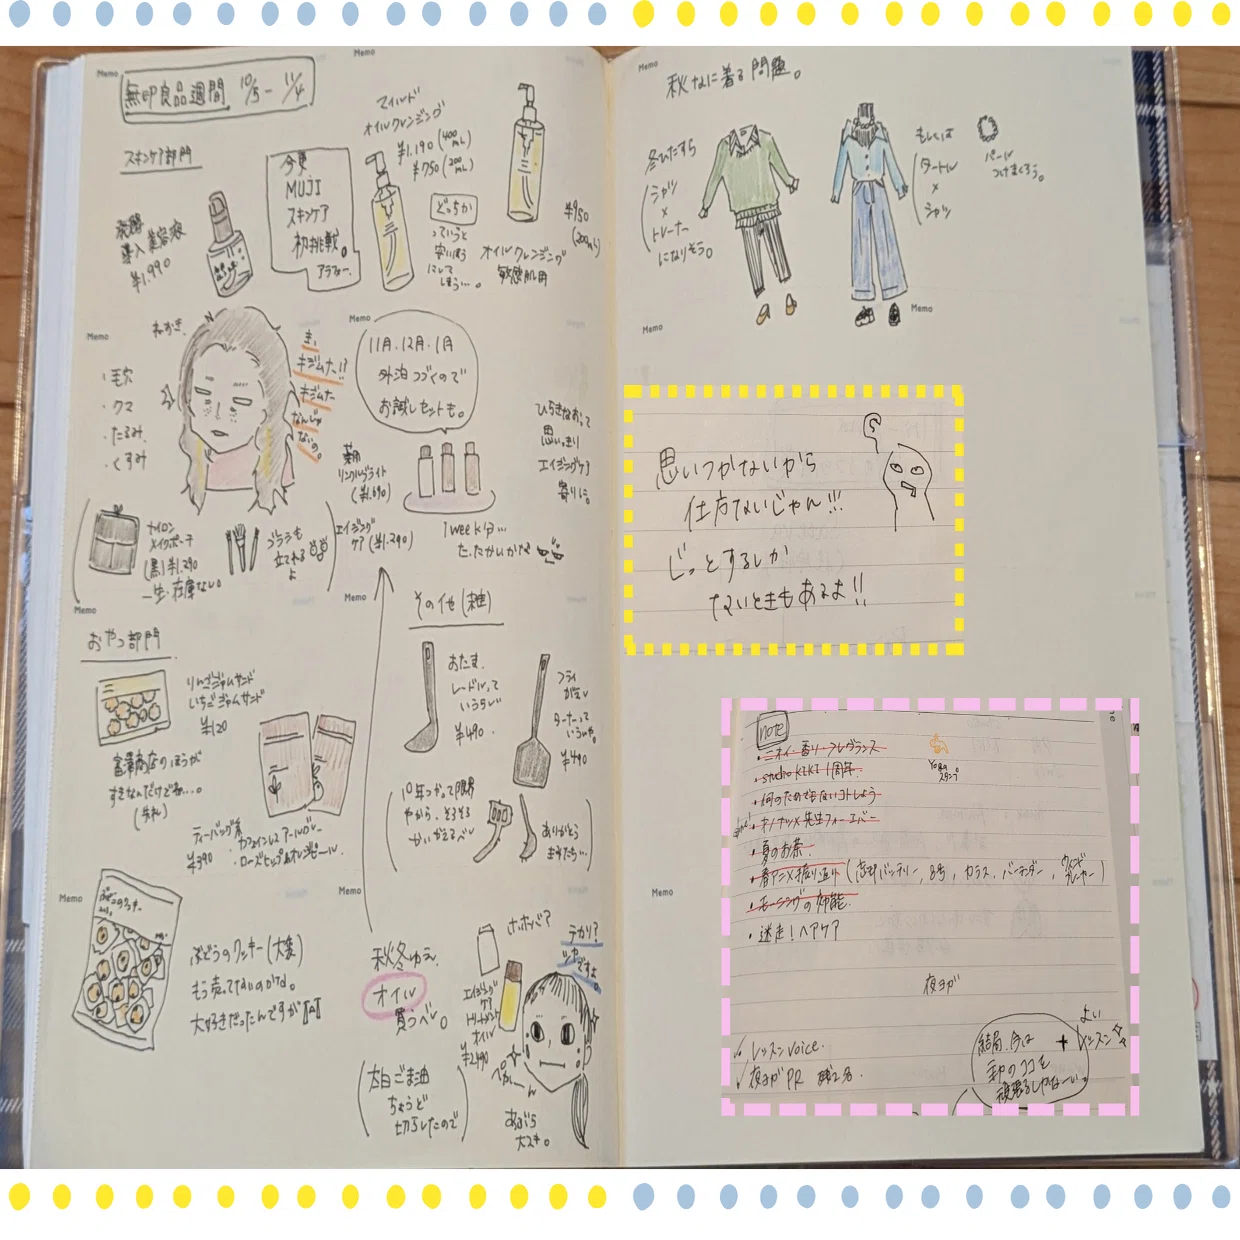 Memo
無印良品週間 10/5 - 11/4
スキンケア部門
Memo
マイルド
オイルクレンジング
¥1.190 (400mL)
¥750 (200mL)
今更
MUJI
スキンケア
初挑戦。
アラフォー。
発酵
導入美容液
¥1.990
どっちか
っていうと
安いほう
にして
しまう…。
オイルクレンジング
敏感肌用
¥950
(200mL)
Memo
ねすぎ。
・毛穴
・クマ
・たるみ
・くすみ
き、
キジムナー!?
キジムナー
なんじゃ
ないの。
Memo
11月.12月.1月
外泊つづくので
お試しセットも。
薬用
リンクルブライト
(¥1.690)
エイジング
ケア (¥1.290)
1week分…
たたかいかな
ひらきなおって
思いっきり
エイジングケア
寄りに。
ナイロン
メイクポーチ
(黒) ¥1.290
一生在庫ない。
ブラシも
立てれる
よ
Memo
おやつ部門
りんごジャムサンド
いちごジャムサンド
¥120
富澤商店のほうが
すきなんだけどね…。
ティーバッグ系
¥390
・カフェインレスアールグレー
・ローズヒップ&オレンジピール
Memo
その他(雑)
おたま。
レードルって
いうらしい
¥490.
フライ
返し
ターナーって
いうんや。
¥490
10年つかって限界
やから、そろそろ
かいかえるべし
ありがとう
きみたち…
Memo
ぶどうのクッキー(大袋)
もう売ってないのかな。
大好きだったんですが
Memo
秋冬ゆえ、
オイル
買うべし。
ホホバ?
エイジング
ケア
トリートメント
オイル
¥2490
テカリ?
ツヤですよ
ペカー
あぶら
大スキ。
(太白ごま油
ちょうど
切らしたので)
Memo
秋なに着る問題。
冬ひたすら
シャツ
×
トレーナー
になりそう。
もしくは
タートル
×
シャツ
パール
つけまくろう。
Memo
Memo
思いつかないから
仕方ないじゃん!!!
じっとするしか
ないときもあるよ!!
note
・ニオイ・香り・フレグランス
・studio KIKI 1周年.
・何のためでもないコトしよう
・夏のお茶.
・春アニメ振り返り (忘却バッテリー, 8号, カラス, バーテンダー, ウィンドブレーカー)
・モーニングの効能.
・迷走!ヘアケア
Yoga
スタンプ
夜ヨガ
✓レッスンvoice.
✓夜ヨガPR 残2名.
結局、今は
私のココを
頑張るしかなーい。
+
よい
レッスン
Memo